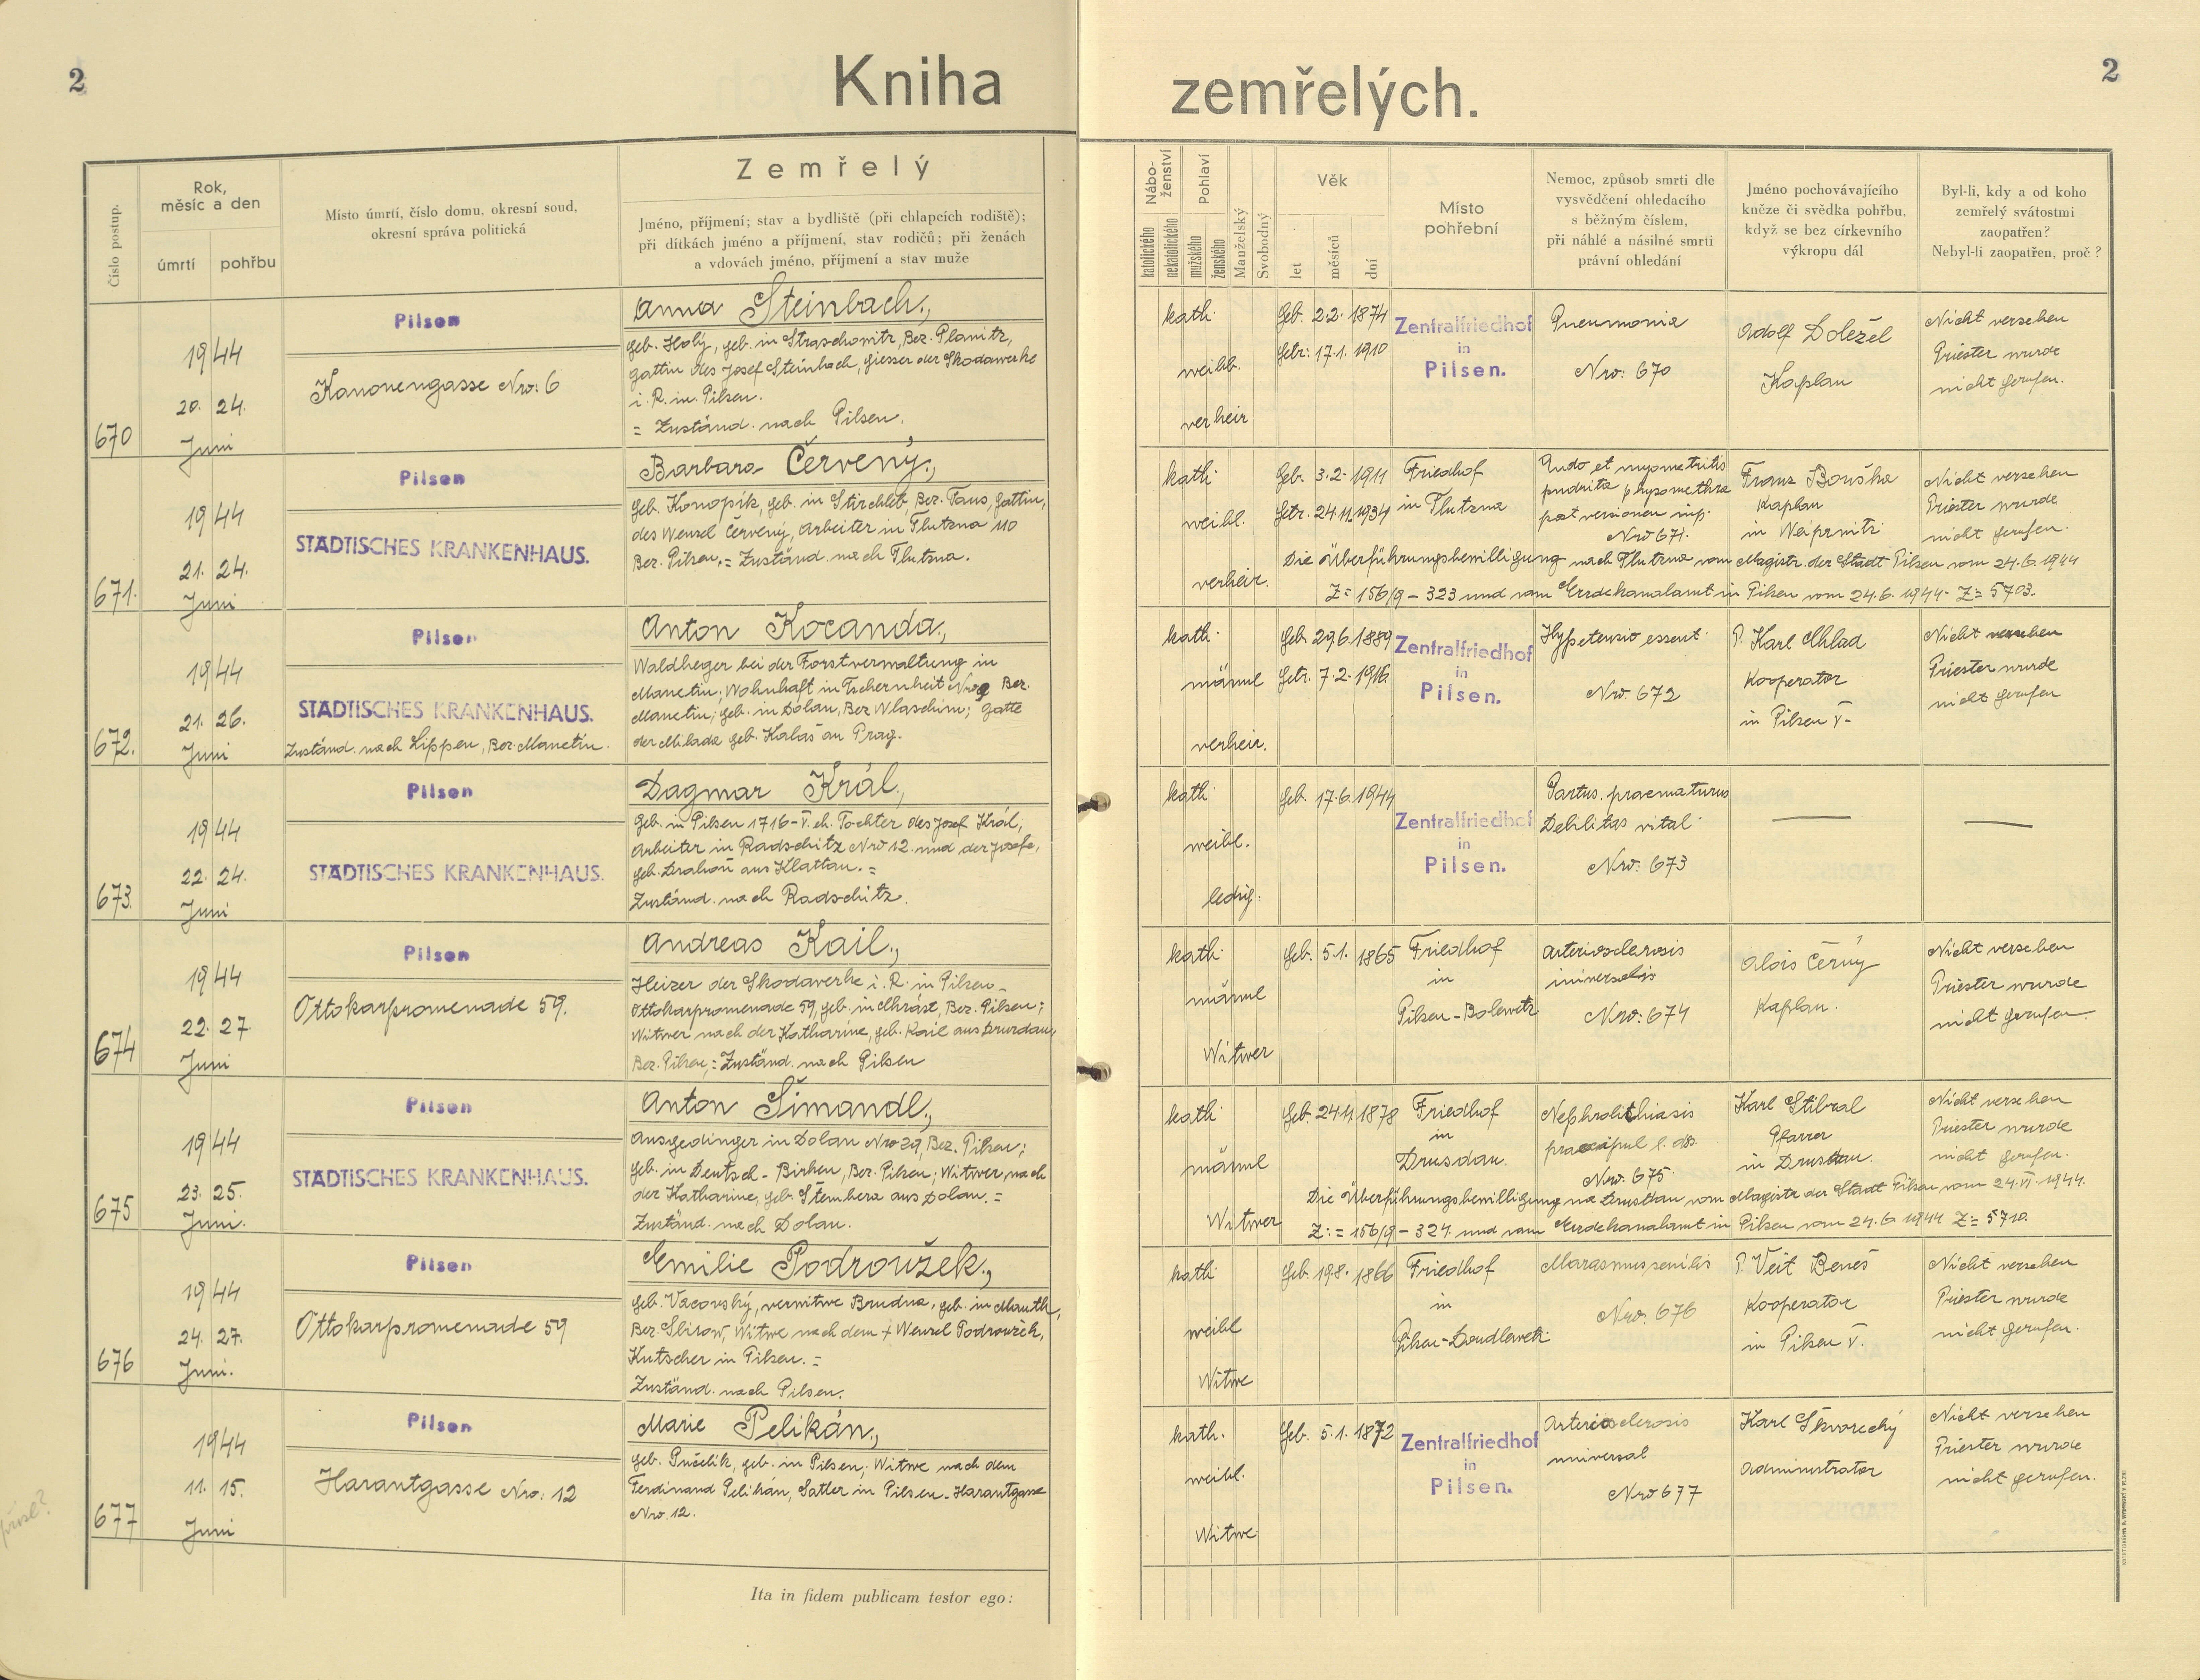 2
Kniha
zemřelých.
2
Číslo postup.
Rok,
měsíc a den
úmrtí
pohřbu
Místo úmrtí, číslo domu, okresní soud,
okresní správa politická
Zemřelý
Jméno, příjmení; stav a bydliště (při chlapcích rodiště);
při dítkách jméno a příjmení, stav rodičů; při ženách
a vdovách jméno, příjmení a stav muže
Nábo-
ženství
katolického
nekatolického
Pohlaví
mužského
ženského
Manželský
Svobodný
Věk
let
měsíců
dní
Místo
pohřební
Nemoc, způsob smrti dle
vysvědčení ohledacího
s běžným číslem,
při náhlé a násilné smrti
právní ohledání
Jméno pochovávajícího
kněze či svědka pohřbu,
když se bez církevního
výkropu dál
Byl-li, kdy a od koho
zemřelý svátostmi
zaopatřen?
Nebyl-li zaopatřen, proč?
670
1944
20. 24.
Juni
Pilsen
Kanonengasse Nro: 6
Anna Steinbach,
geb. Holý, geb. in Straschowitz, Bez. Planitz,
Gattin des Josef Steinbach, Giesser der Skodawerke
i. R. in Pilsen.
= Zuständ. nach Pilsen.
kath.
weibl.
verheir
Geb. 2.2. 1874
Getr: 17.1. 1910
Zentralfriedhof
in
Pilsen.
Pneumonia
Nro: 670
Adolf Doležel
Kaplan
Nicht versehen
Priester wurde
nicht gerufen.
671.
1944
21. 24.
Juni
Pilsen
STÄDTISCHES KRANKENHAUS.
Barbara Červený,
geb. Konopik, geb. in Stirchleb, Bez. Taus, Gattin,
des Wenzel Červený, Arbeiter in Tlutzna 110
Bez. Pilsen. = Zuständ. nach Tlutzna.
kath.
weibl.
verheir.
Geb. 3.2. 1911
Getr. 24.11.1934
Friedhof
in Tlutzna
Endo et myometritis
putrida physometra
post versionem
Nro 671.
Franz Bouška
Kaplan
in Weiprnitz
Nicht versehen
Priester wurde
nicht gerufen.
Die Überführungsbewilligung nach Tlutzna vom Magistr. der Stadt Pilsen vom 24.6.1944
Z= 156/9 – 323 und vom Erzdekanalamt in Pilsen vom 24.6.1944. Z= 5703.
672.
1944
21. 26.
Juni
Pilsen
STÄDTISCHES KRANKENHAUS.
Zuständ. nach Lippen, Bez. Manetin.
Anton Kocanda,
Waldheger bei der Forstverwaltung in
Manetin; Wohnhaft in Tschernheit Nro 9 Bez.
Manetin; geb. in Dolan, Bez Wlaschim; Gatte
der Milada geb. Kalaš au Prag.
kath.
männl
verheir.
Geb. 29.6.1889
Getr. 7.2. 1916.
Zentralfriedhof
in
Pilsen.
Hypetensio essent.
Nro. 672
P. Karl Chlad
Kooperator
in Pilsen V.
Nicht versehen
Priester wurde
nicht gerufen
673.
1944
22. 24.
Juni
Pilsen
STÄDTISCHES KRANKENHAUS.
Dagmar Král,
Geb. in Pilsen 1716-V. eh. Tochter des Josef Král,
Arbeiter in Radschitz Nro 12. und der Josefa,
geb. Drahoň aus Klattau. =
Zuständ. nach Radschitz.
kath.
weibl.
ledig.
Geb. 17.6.1944
Zentralfriedhof
in
Pilsen.
Partus praematurus
Debilitas vital.
Nro: 673
674
1944
22. 27.
Juni
Pilsen
Ottokarpromenade 59.
Andreas Kail,
Heizer der Skodawerke i. R. in Pilsen-
Ottokarpromenade 59, geb. in Chrást, Bez. Pilsen;
Witwer nach der Katharine, geb. Kail aus Drusdau,
Bez. Pilsen; = Zuständ. nach Pilsen
kath.
männl
Witwer
Geb. 5.1. 1865
Friedhof
in
Pilsen-Bolewetz
Arteriosclerosis
universalis
Nro: 674
Alois Černý
Kaplan.
Nicht versehen
Priester wurde
nicht gerufen.
675
1944
23. 25.
Juni.
Pilsen
STÄDTISCHES KRANKENHAUS.
Anton Šimandl,
Ausgedinger in Dolan Nro 29, Bez. Pilsen;
geb. in Deutsch-Birken, Bez. Pilsen; Witwer nach
der Katharine, geb. Štembera aus Dolan. =
Zuständ. nach Dolan.
kath.
männl
Witwer
Geb. 24.11.1878
Friedhof
in
Drusdau.
Nephrolithiasis
praecipue l. ds.
Nro. 675
Karl Stibral
Pfarrer
in Drusdau.
Nicht versehen
Priester wurde
nicht gerufen.
Die Überführungsbewilligung na Drusdau vom Magistr der Stadt Pilsen vom 24.VI.1944.
Z: = 156/9 – 324 und vom Erzdekanalamt in Pilsen vom 24.6.1944 Z= 5710.
676
1944
24. 27.
Juni.
Pilsen
Ottokarpromenade 59
Emilie Podroužek,
geb. Vacovský, verwitwe Brudna, geb. in Mauth,
Bez. Sbirow, Witwe nach dem + Wenzel Podroužek,
Kutscher in Pilsen. =
Zuständ. nach Pilsen.
kath.
weibl
Witwe
Geb. 19.8. 1866
Friedhof
in
Pilsen-Doudlewetz
Marasmus senilis
Nro. 676
P. Veit Beneš
Kooperator
in Pilsen V.
Nicht versehen
Priester wurde
nicht gerufen.
677
1944
11. 15.
Juni
Pilsen
Harantgasse Nro: 12
Marie Pelikán,
geb. Pučelik, geb. in Pilsen; Witwe nach dem
Ferdinand Pelikán, Satler in Pilsen-Harantgasse
Nro. 12.
kath.
weibl.
Witwe
Geb. 5.1. 1872
Zentralfriedhof
in
Pilsen.
Arteriosclerosis
universal
Nro 677
Karl Škvorecký
Administrator
Nicht versehen
Priester wurde
nicht gerufen.
Ita in fidem publicam testor ego: